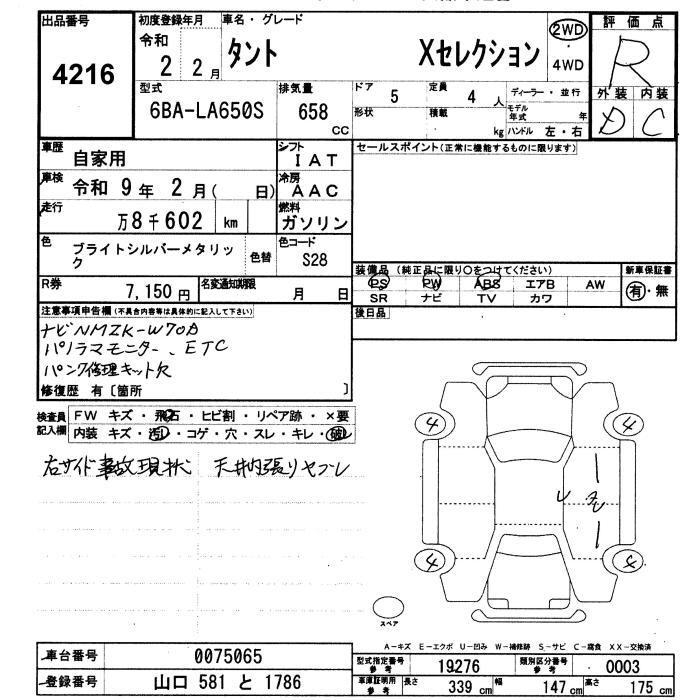 出品番号
4216
初度登録年月
令和
2 2月
車名・グレード
タント Xセレクション
2WD
4WD
評価点
R
外装 内装
D C
型式
6BA-LA650S
排気量
658
CC
ドア 5
定員 4 人
形状
積載 kg
ディーラー・並行
モデル年式 年
ハンドル 左・右
車歴
自家用
シフト
IAT
車検
令和 9年 2月( 日)
冷房
AAC
走行
万8千602 km
燃料
ガソリン
色
ブライトシルバーメタリック
色替
色コード
S28
R券
7,150円
名変通知期限
月 日
セールスポイント(正常に機能するものに限ります)
装備品(純正品に限り○をつけてください)
PS PW ABS エアB AW
SR ナビ TV カワ
新車保証書
有・無
後日品
注意事項申告欄(不具合内容等は具体的に記入して下さい)
ナビNMZK-W70D
パノラマモニター、ETC
パンク修理キット欠
修復歴 有〔箇所 〕
検査員
記入欄
FW キズ・飛石・ヒビ割・リペア跡・×要
内装 キズ・汚れ・コゲ・穴・スレ・キレ・破れ
右サイド事故現状 天井内張り
4
4
4
U
スペア
A-キズ E-エクボ U-凹み W-補修跡 S-サビ C-腐食 XX-交換済
車台番号
0075065
登録番号
山口 581 と 1786
型式指定番号
参考
19276
類別区分番号
参考
0003
車庫証明用
参考
長さ 339 cm
幅 147 cm
高さ 175 cm